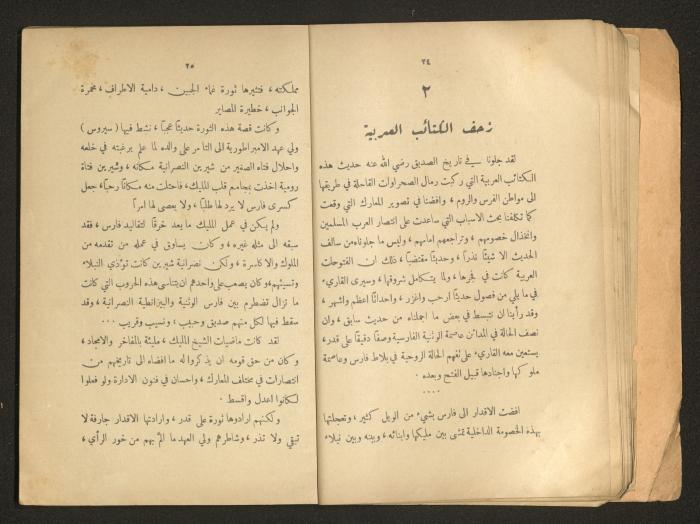 ٢٤
٢
زحف الكتائب العربية
لقد جلونا في تاريخ الصديق رضي الله عنه حديث هذه
الكتائب العربية التي ركبت رمال الصحراوات القاحلة في طريقها
الى مواطن الفرس والروم، وافضنا في تصوير المعارك التي وقعت
كما تكلفنا بحث الاسباب التي ساعدت على انتصار العرب المسلمين
وانخذال خصومهم، وتراجعهم امامهم، وليس ما جلوناه من سالف
الحديث الا شيئاً نذراً، وحديثاً مقتضباً، ذلك ان الفتوحات
العربية كانت في فجرها، ولما يتكامل شروقها، وسيرى القاريء
في ما يلي من فصول حديثاً ارحب واغزر، واحداثاً اعظم واشهر،
وقد رأينا ان نتبسط في بعض ما اجملناه من حديث سابق، وان
نصف الحالة في المدائن عاصمة الوثنية الفارسية وصفاً دقيقاً على قدر،
يستبين معه القاريء على نفهم الحالة الروحية في بلاط فارس وعاصمة
ملوكها واجنادها قبيل الفتح وبعده.
....
افضت الاقدار الى فارس بشيء من الويل كثير، وتعجلتها
بهذه الخصومة الداخلية تمشى بين مليكها وابنائه، وبينه وبين نبلاء
٢٥
مملكته، فتثيرها ثورة غماء الجبين، دامية الاطراف، محمرة
الجوانب، خطيرة المصاير
وكانت قصة هذه الثورة حديثاً عجباً، نشط فيها (سيروس)
ولي عهد الامبراطورية الى التآمر على والده لما علم برغبته في خلعه
واحلال فتاه الصغير من شيرين النصرانية مكانه، وشيرين فتاة
رومية اخذت بمجامع قلب المليك، فاحتلت منه مكاناً رحباً، جعل
كسرى فارس لا يرد لها طلباً، ولا يعصى لها امراً
ولم يكن في عمل المليك ما يعد خرقاً لتقاليد فارس، فقد
سبقه الى مثله غيره، وكان يساوق في عمله من تقدمه من
الملوك والاكاسرة، ولكن نصرانية شيرين كانت تؤذي النبلاء
وتسيئهم، وكان يصعب على واحدهم ان يتناسى هذه الحروب التي كانت
ما تزال تضطرم بين فارس الوثنية والبيزانطية النصرانية، وقد
سقط فيها لكل منهم صديق وحبيب، ونسيب وقريب ...
لقد كانت ماضيات الشيخ المليك، مليئة بالمفاخر والامجاد،
وكان من حق قومه ان يذكروا له ما افضاه الى تاريخهم من
انتصارات في مختلف المعارك، واحسان في فنون الادارة ولو فعلوا
لكانوا اعدل واقسط.
ولكنهم ارادوها ثورة على قدر، وارادتها الاقدار جارفة لا
تبقي ولا تذر، وشاطرهم ولي العهد ما ألم بهم من خور الرأي،